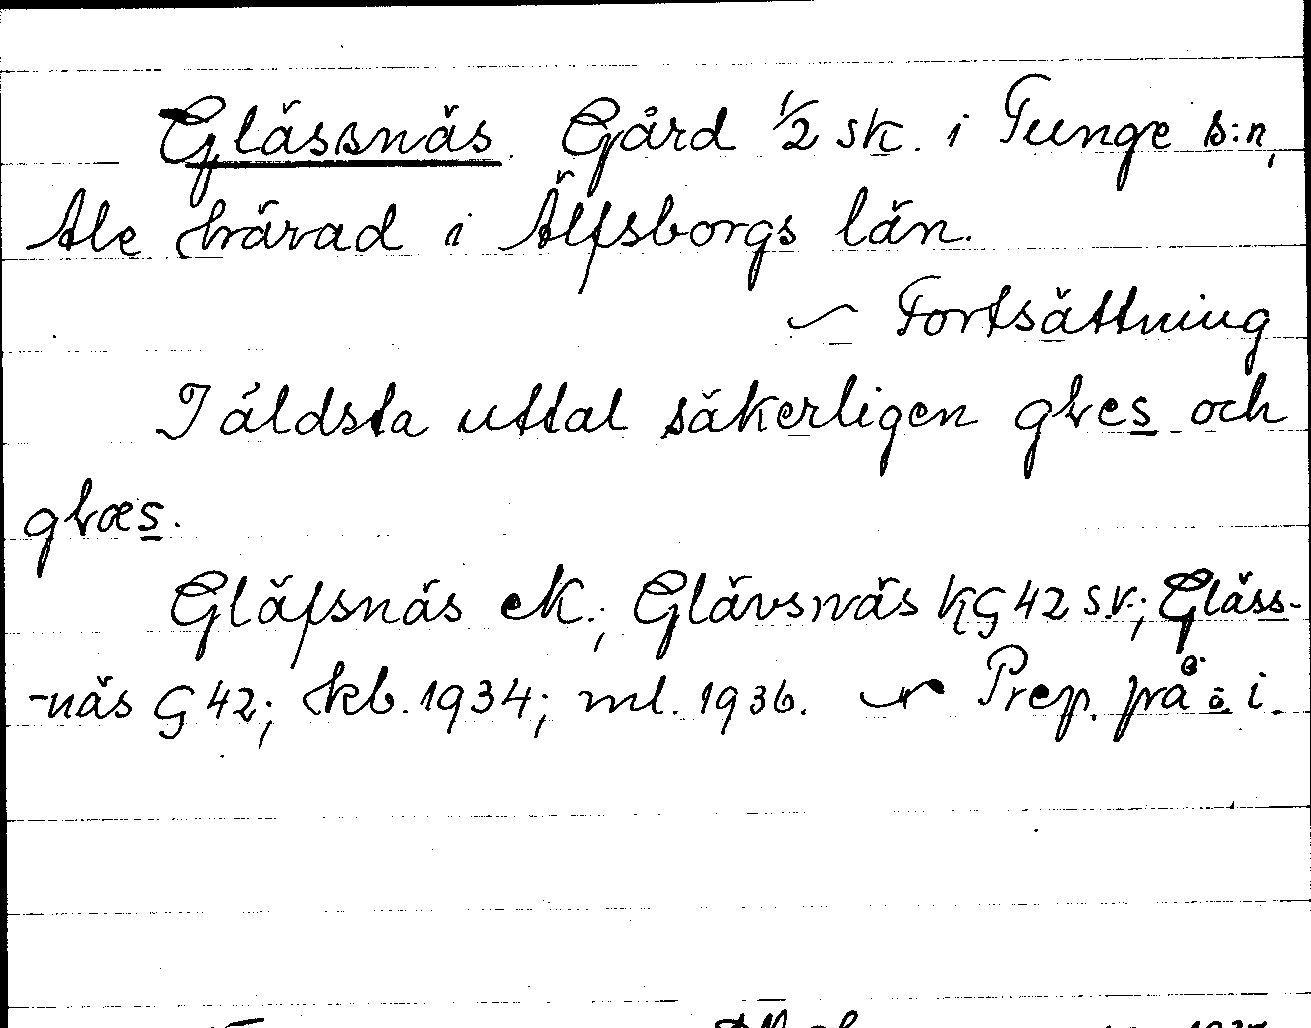 Glässnäs. Gård 1/2 sk. i Tunge s:n,
Ale härad i Älfsborgs län.
~ Fortsättning
I äldsta uttal säkerligen gles och
glæs.
Gläfsnäs eK.; Glävsnäs KG 42 sv.; Gläss-
-näs G 42; kb. 1934; ml. 1936. Prep. på o. i.
1937